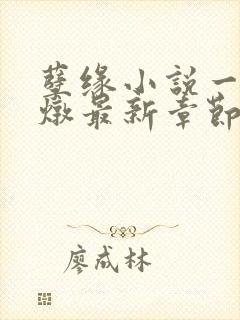 孽缘小説一
燉最新章節
廖成林